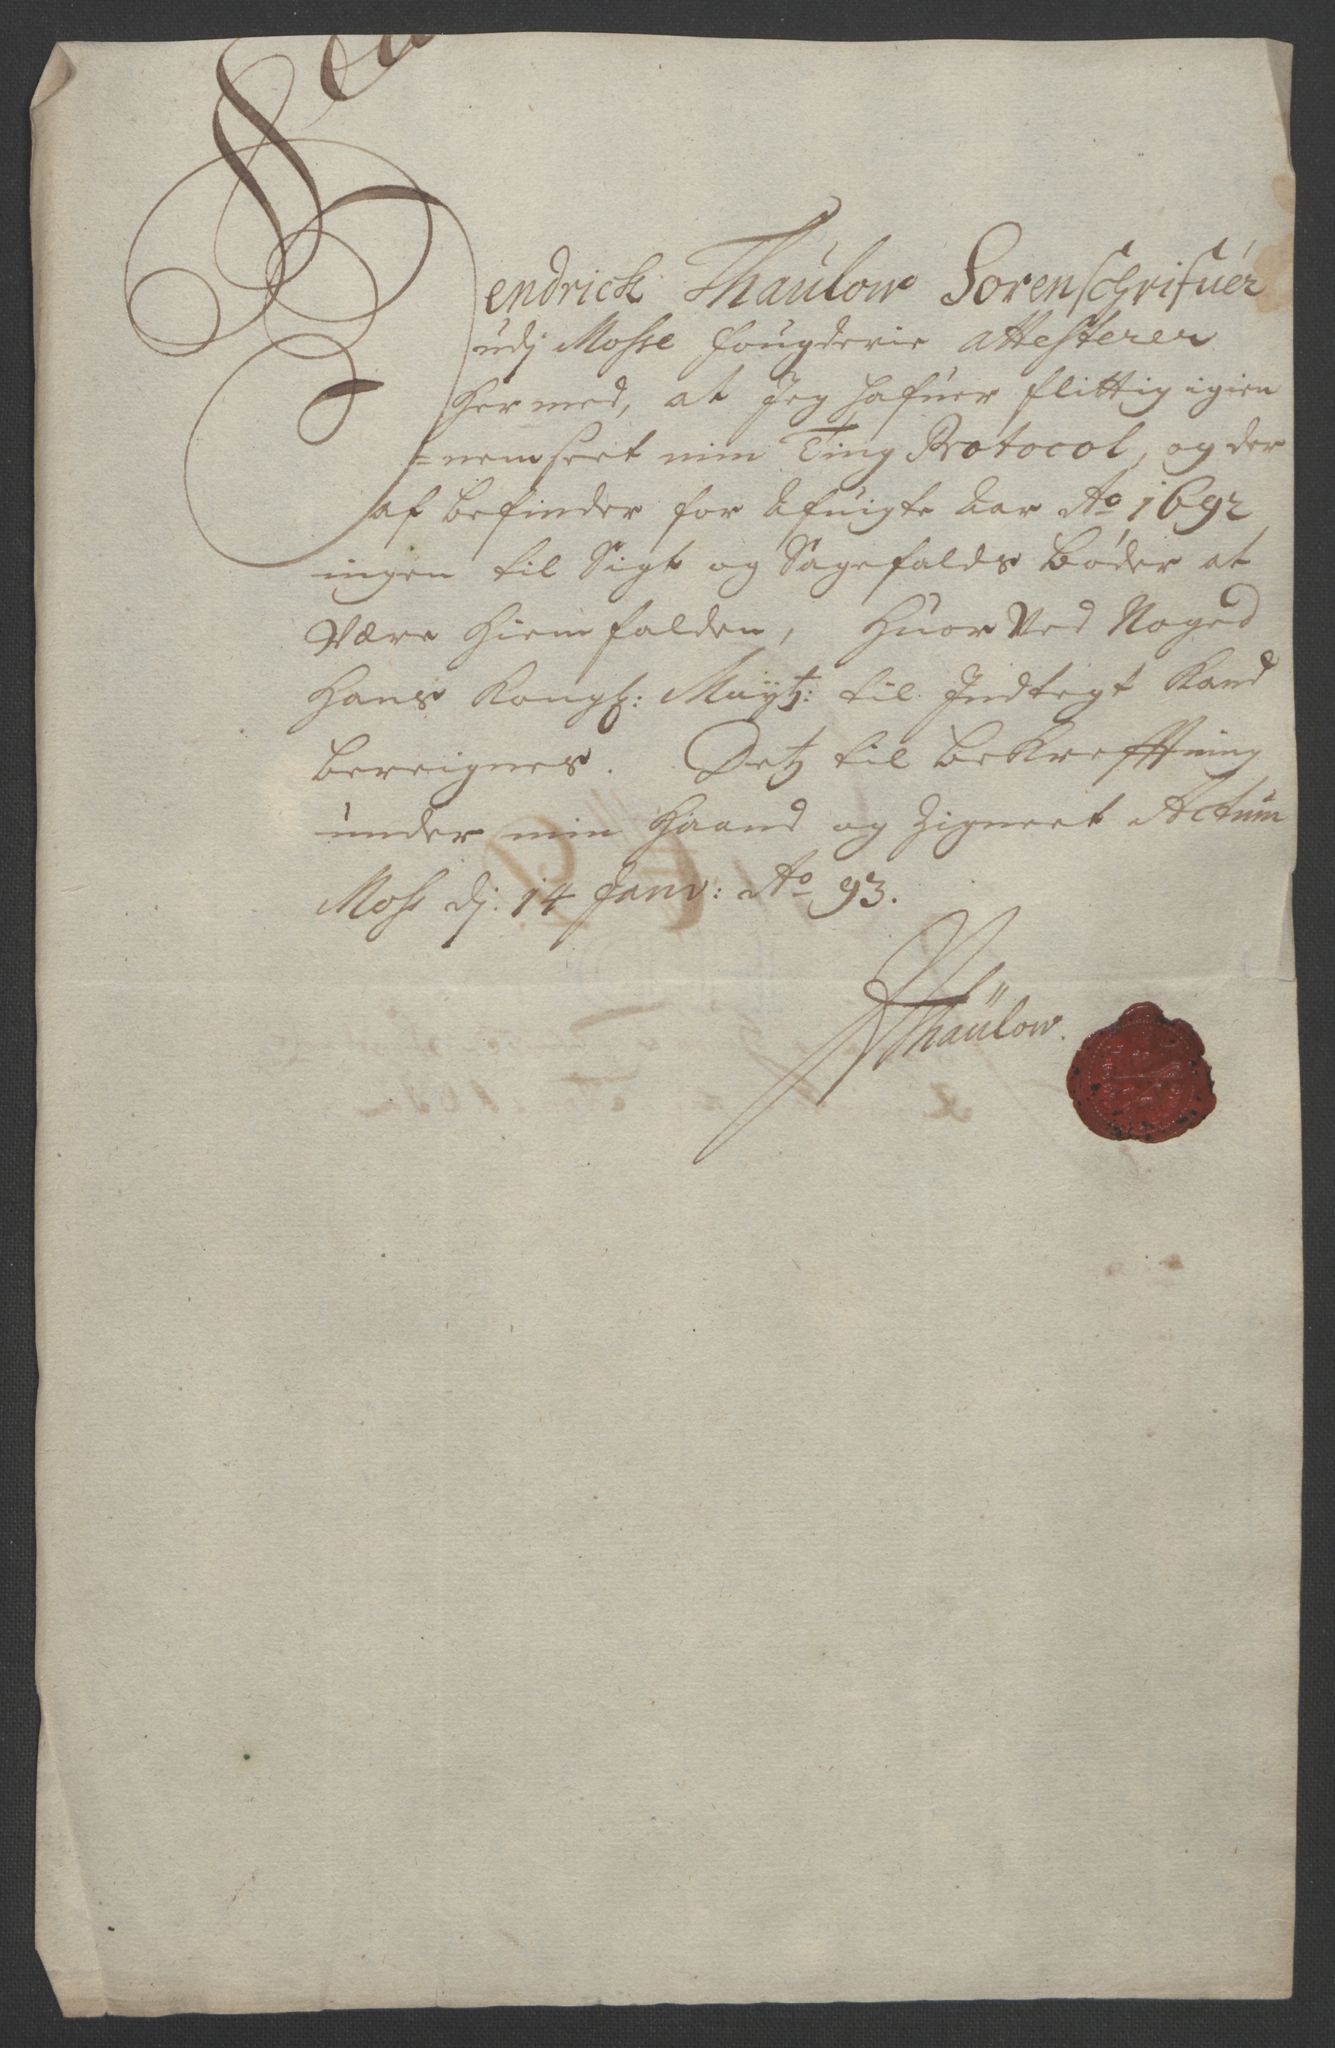 Hendrick Thaulow Sorenschrifuer
udj Mosse fougderie attesterer
hermed, at Jeg hafuer flittig igien
=nemseet min Ting Protocol, og der
af befinder for Afuigte Aar Ao 1692
ingen til Sigt og Sagefalds bøder at
være hiemfalden, Huor Ved Noged
Hans Kongl: Mayt: til Indtegt Kand
bereignes. Detz til bekrefftning
under min Haand og Zignect Actum
Moss dj. 14 Janv: Ao 93.
HThaülow.